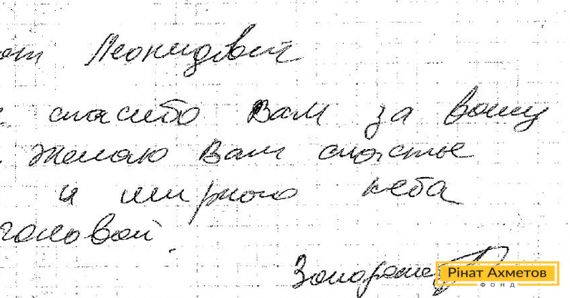 Леонидович
спасибо Вам за вашу
желаю Вам счастье
и мирного неба
головой.
Рінат Ахметов
ФОНД